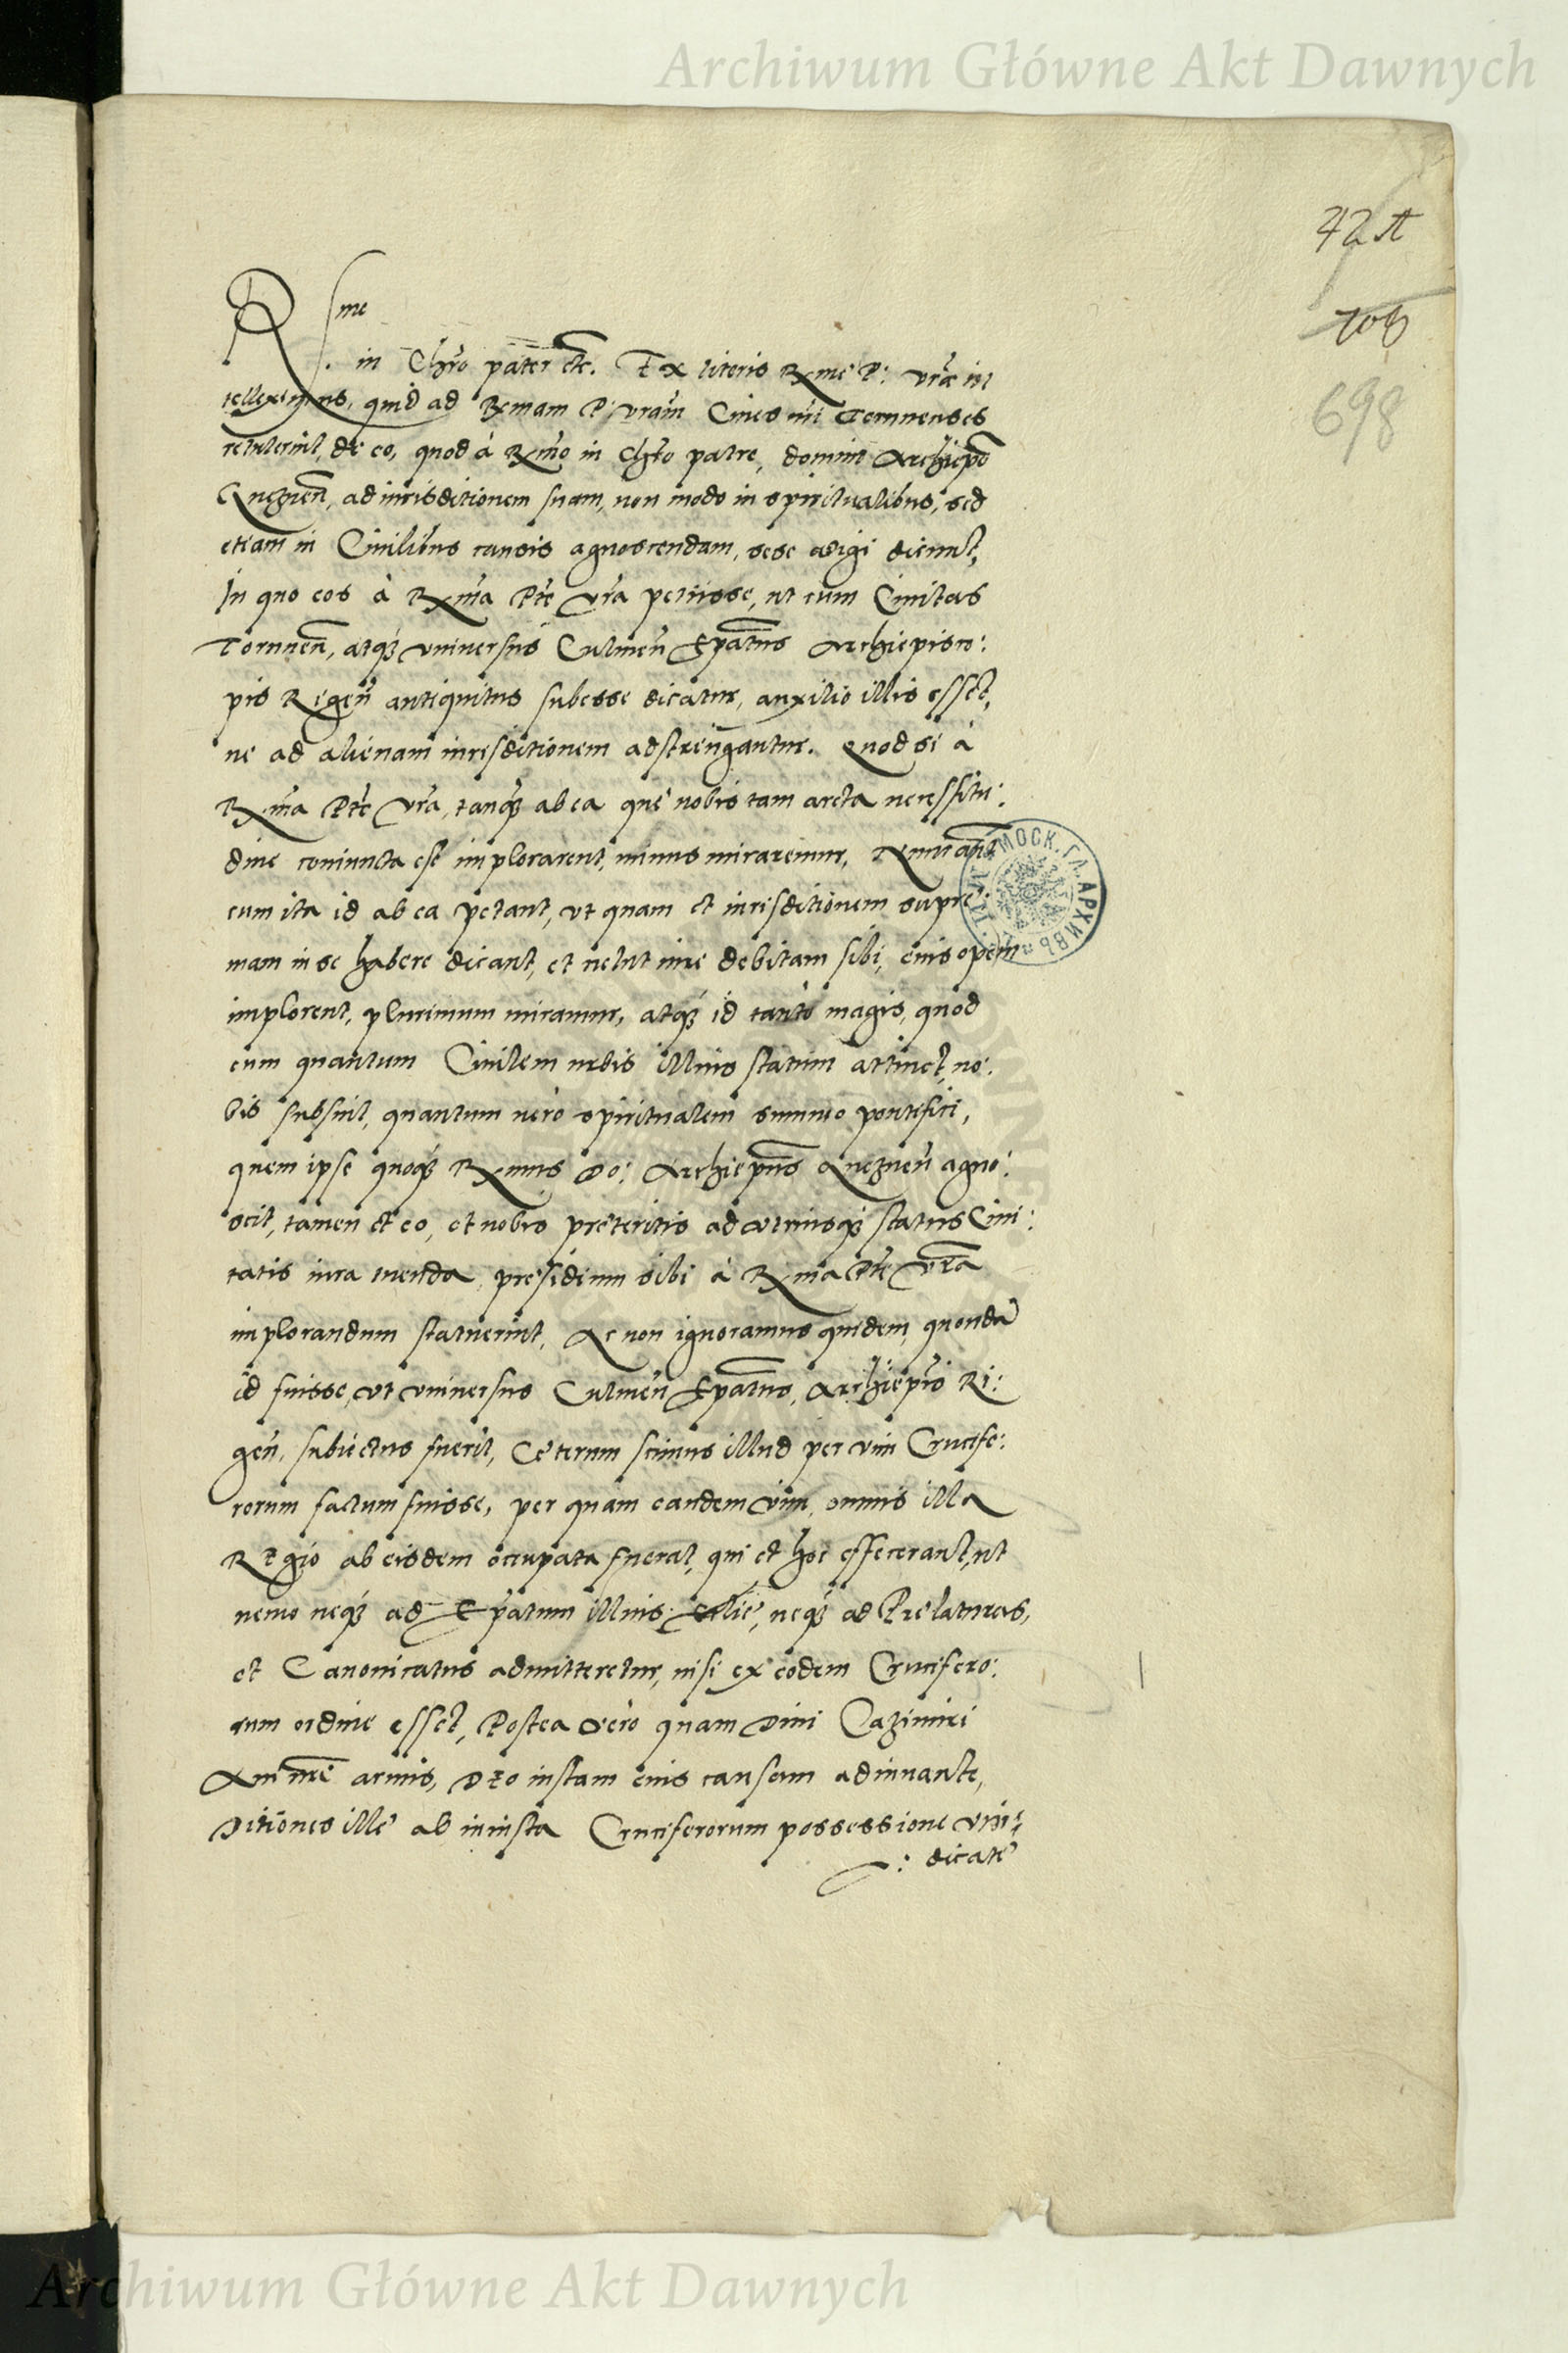 Archiwum Główne Akt Dawnych
42
106
698
Rsme
in Chro pater etc. Ex literis Rxme P: vrae in
telleximus, quid ad Rxmam P: vram Cives nri Tornnenses
retulerint, de eo, quod à Rxmo in Chro patre, domino Archiepo
Gneznen, ad iurisditionem suam, non modo in spiritualibus, sed
etiam in Civilibus causis agnoscendam, sese adigi dicunt,
In quo eos à Rxma Pte vra petiisse, ut cum Civitas
Tornnen, atq3 vniversus Culmen Epatus Archiepisco:
pis Regen antiquitus subesse dicatur, auxilio illis esset,
ne ad alienam iurisditionem adstringantur. Quod si à
Rxma Pte vra, tanq3 ab ea quę nobis tam arcta necessitu:
dine coniuncta est implorarent, minus miraremur,
cum ita id ab ea petant, vt quam et iurisditionem supre:
mam in se habere dicant, et velut iure debitam sibi, eius opem
implorent, plurimum miramur, atq3 id tanto magis, quod
cum quantum Civilem urbis illius statum attinet, no:
bis subsint, quantum vero spiritualem summo pontifici,
quem ipse quoq3 Rxmus Do: Archiepus Gneznen agno:
scit, tamen et eo, et nobis pręteritis ad vtriusq3 status Civi:
tatis iura tuenda, pręsidium sibi à Rxma Pte vra
implorandum statuerint, Ac non ignoramus quidem, quondã
id fuisse, vt vniversus Culmen Epatus, Archiepo Ri:
gen, subiectus fuerit, Cęterum scimus illud per vim Crucife:
rorum factum fuisse, per quam eandem vim, omnis illa
Regio ab eisdem occupata fuerat, qui et hoc effecerant, ut
nemo neq3 ad Epatum illius Eclię, neq3 ad Pręlaturas,
et Canonicatus admitteretur, nisi ex eodem Crucifero:
rum ordine esset, Postea vero quam Divi Cazimiri
Avi nri armis, Deo iustam eius causam adiuvante,
Ditiones illę ab iniusta Cruciferorum possessione vin:
dicatę
МОСК. ГЛ. АРХИВЪ
Archiwum Główne Akt Dawnych